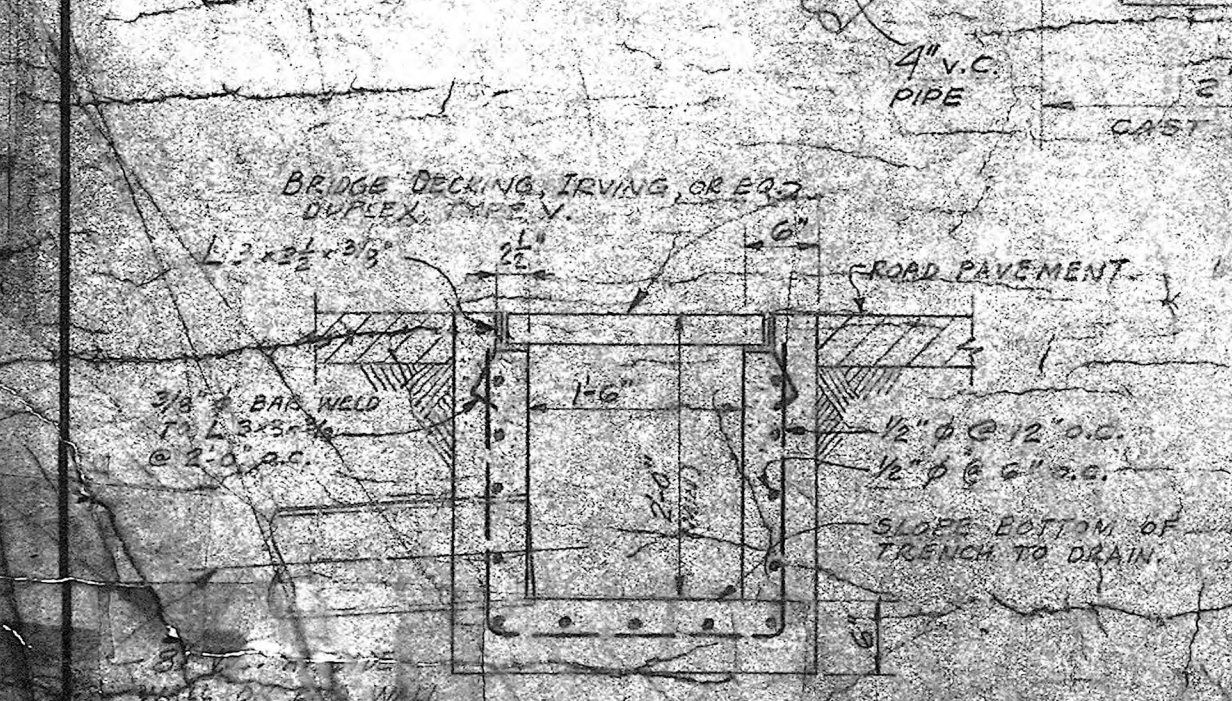 4" V.C.
PIPE
2
CAST
BRIDGE DECKING, IRVING, OR EQ
DUPLEX, TYPE V.
6"
2 1/2"
L 3 x 3 1/2 x 3/8"
ROAD PAVEMENT
1'-6"
3/8" ⌀ BAR WELD
TO L 3x3x3/8
@ 2'-0" O.C.
1/2" ⌀ @ 12" O.C.
1/2" ⌀ @ 6" O.C.
2'-0"
(MIN.)
SLOPE BOTTOM OF
TRENCH TO DRAIN.
6"